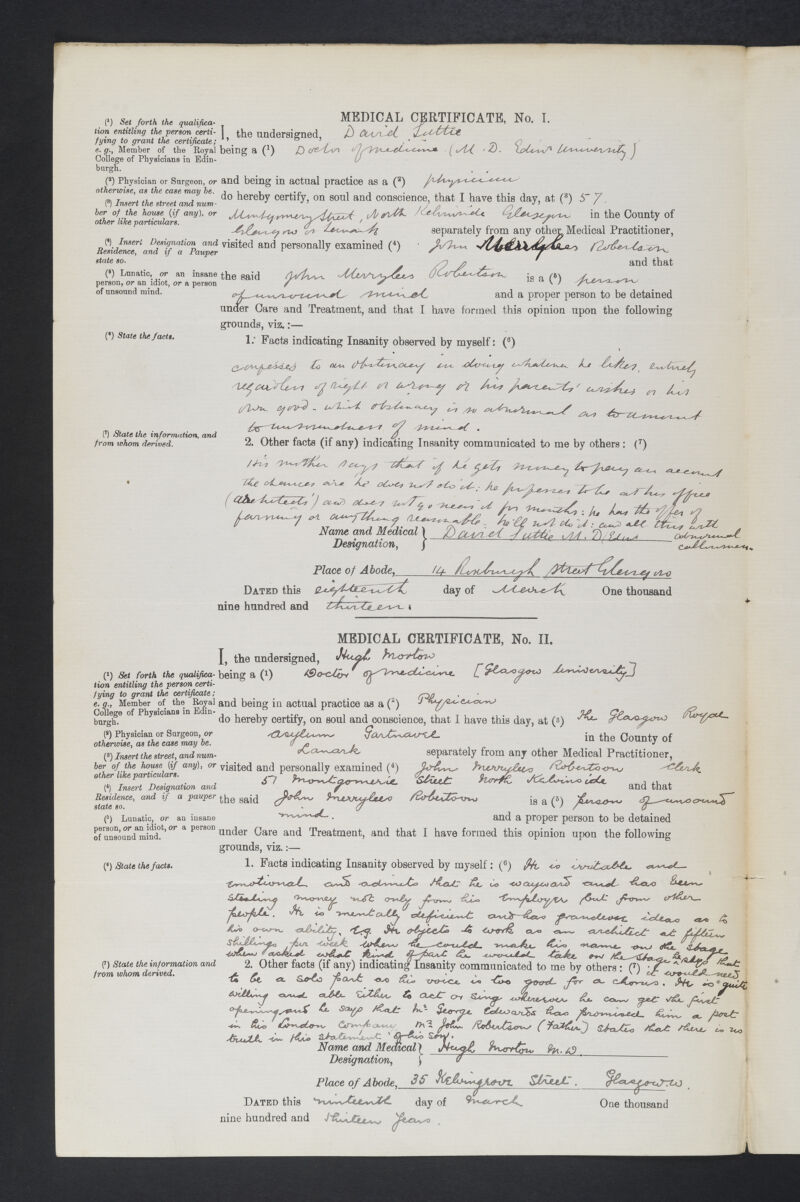 MEDICAL CERTIFICATE, No. I.
(¹) Set forth the qualifica-
tion entitling the person certi-
fying to grant the certificate;
e.g., Member of the Royal
College of Physicians in Edin-
burgh.
I, the undersigned, David Suttie
being a (¹) Doctor of medicine (M.D. Edinr University)
(²) Physician or Surgeon, or
otherwise, as the case may be.
and being in actual practice as a (²) physician
(³) Insert the street and num-
ber of the house (if any), or
other like particulars.
do hereby certify, on soul and conscience, that I have this day, at (³) 57
Montgomery Street, North Kelvinside Glasgow in the County of
Glasgow or Lanark separately from any other Medical Practitioner,
(⁴) Insert Designation and
Residence, and if a Pauper
state so.
visited and personally examined (⁴) John Merrylees Robertson
and that
(⁵) Lunatic, or an insane
person, or an idiot, or a person
of unsound mind.
the said John Merrylees Robertson is a (⁵) person
of unsound mind and a proper person to be detained
under Care and Treatment, and that I have formed this opinion upon the following
grounds, viz.:—
(⁶) State the facts.
1. Facts indicating Insanity observed by myself: (⁶)
confesses to an obstinacy in doing whatever he likes, entirely
regardless of right or wrong or his parents' wishes or his
own good - which obstinacy is so abnormal as to amount
to unsoundness of mind.
(⁷) State the information, and
from whom derived.
2. Other facts (if any) indicating Insanity communicated to me by others: (⁷)
His mother says that if he gets money to pay an account
the chances are he does not do it: he professes to be at his office
(architects') and does not go near it for months: he has the offer of
farming or anything reasonable: he'll not do it: and all this with
abnormal
callousness.
Name and Medical Designation, David Suttie M.D. Edinr
Place of Abode, 14 Roxburgh Street Glasgow
DATED this eighteenth day of March One thousand
nine hundred and thirteen.
MEDICAL CERTIFICATE, No. II.
(¹) Set forth the qualifica-
tion entitling the person certi-
fying to grant the certificate;
e.g., Member of the Royal
College of Physicians in Edin-
burgh.
I, the undersigned, Hugh Morton
being a (¹) Doctor of medicine [Glasgow University]
and being in actual practice as a (²) Physician
(²) Physician or Surgeon, or
otherwise, as the case may be.
do hereby certify, on soul and conscience, that I have this day, at (³) the Glasgow Royal
asylum Gartnavel in the County of
(³) Insert the street, and num-
ber of the house (if any), or
other like particulars.
Lanark separately from any other Medical Practitioner,
visited and personally examined (⁴) John Merrylees Robertson Clerk
57 Montgomerie Street North Kelvinside and that
(⁴) Insert Designation and
Residence, and if a pauper
state so.
the said John Merrylees Robertson is a (⁵) person of unsound
(⁵) Lunatic, or an insane
person, or an idiot, or a person
of unsound mind.
mind. and a proper person to be detained
under Care and Treatment, and that I have formed this opinion upon the following
grounds, viz.:—
(⁶) State the facts.
1. Facts indicating Insanity observed by myself: (⁶) He is irritable and
emotional and admits that he is wayward and has been
stealing money not only from his employer but from other
people. He is mentally deficient and has grandeose ideas as to
his own ability. Eg He objects to work as an architect at fifteen
shillings per week when he could make his name on the stage
when asked what kind of part he would take on the stage he says that
(⁷) State the information and
from whom derived.
2. Other facts (if any) indicating Insanity communicated to me by others: (⁷) it would need
to be a solo part as his voice is too good for a chorus. He is quite
willing and able either to act or sing wherever he can get the first
opening and he says that Mr George Edwards has promised him a part
in his London Company Mr John Robertson (Father) states that there is no
truth in this statement of his son.
Name and Medical Designation, Hugh Morton M.D.
Place of Abode, 35 Kelvingrove Street. Glasgow.W.
DATED this ninteenth day of March One thousand
nine hundred and thirteen years.